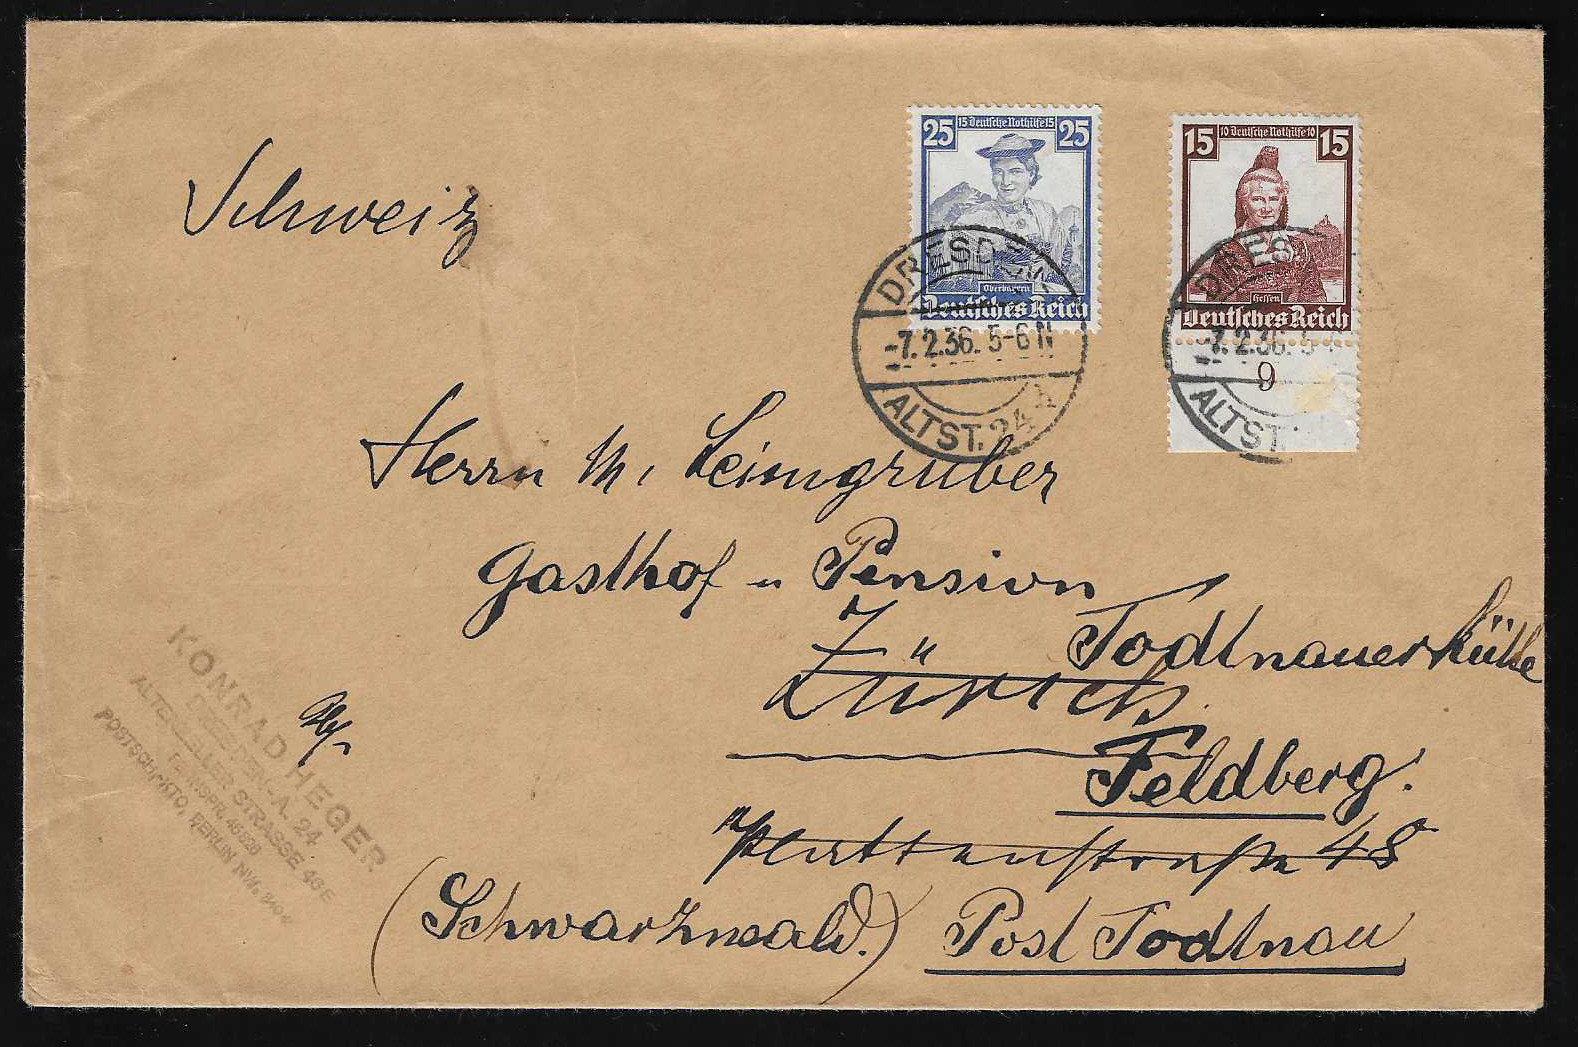 Schweiz
25 15 Deutsche Nothilfe 15 25
Oberbayern
Deutsches Reich
15 10 Deutsche Nothilfe 10 15
Hessen
Deutsches Reich
9
DRESDEN
-7.2.36. 5-6 N
ALTST. 24
DRES
-7.2.36. 5-
ALTST.
Herrn M. Leimgruber
Gasthof u Pension
Todtnauerhütte
Zürich
Feldberg.
Plattenstraße 48
(Schwarzwald.) Post Todtnau
KONRAD HEGER
DRESDEN-A. 24
ALTENZELLER STRASSE 46E
FERNSPR. 46820
POSTSCHKTO. BERLIN NW.